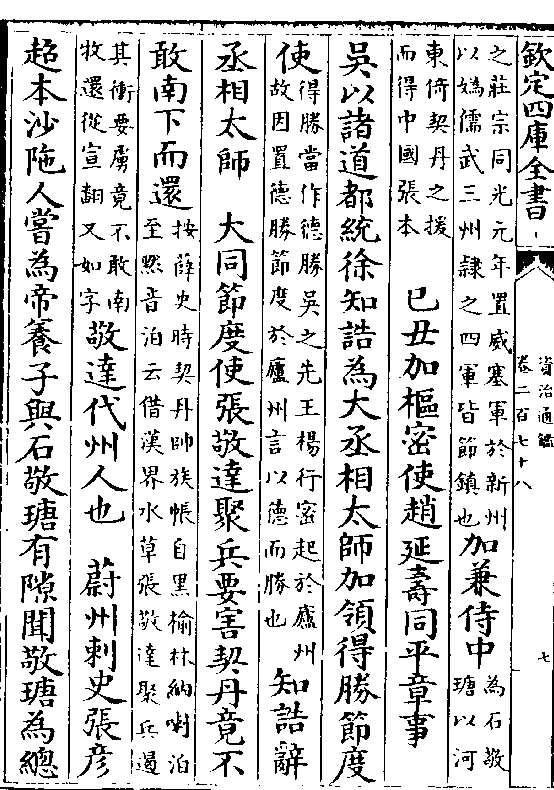 欽定四庫全書
資治通鑑
卷二百七十八
七
之莊宗同光元年置威塞軍於新州
以媯儒武三州隸之四軍皆節鎮也
加兼侍中
為石敬
瑭以河
東倚契丹之援
而得中國張本
己丑加樞密使趙延壽同平章事
吳以諸道都統徐知誥為大丞相太師加領得勝節度
使
得勝當作德勝吳之先王楊行密起於廬州
故因置德勝節度於廬州言以德而勝也
知誥辭
丞相太師　大同節度使張敬達聚兵要害契丹竟不
敢南下而還
按薛史時契丹帥族帳自黑榆林納喇泊
至黙音泊云借漢界水草張敬達聚兵遏
其衝要虜竟不敢南
牧還從宣翻又如字
敬達代州人也　蔚州刺史張彦
超本沙陁人嘗為帝養子與石敬瑭有隙聞敬瑭為總